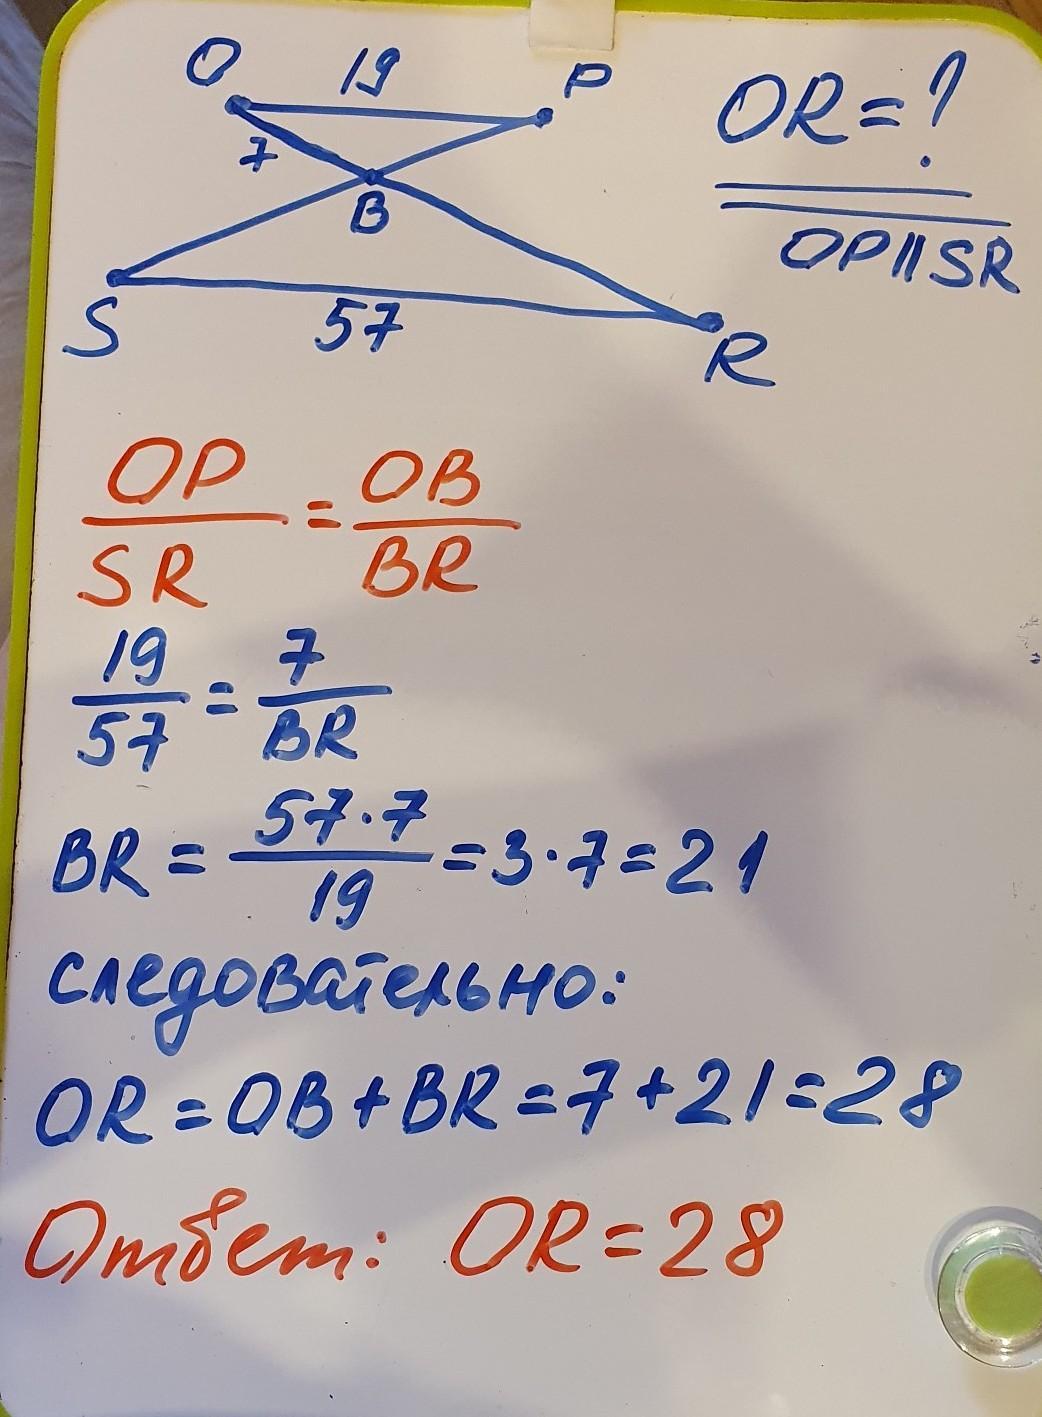 O 19 P
OR = ?
7
B
OP || SR
S 57 R
OP/SR = OB/BR
19/57 = 7/BR
BR = 57·7/19 = 3·7 = 21
следовательно:
OR = OB + BR = 7 + 21 = 28
Ответ: OR = 28